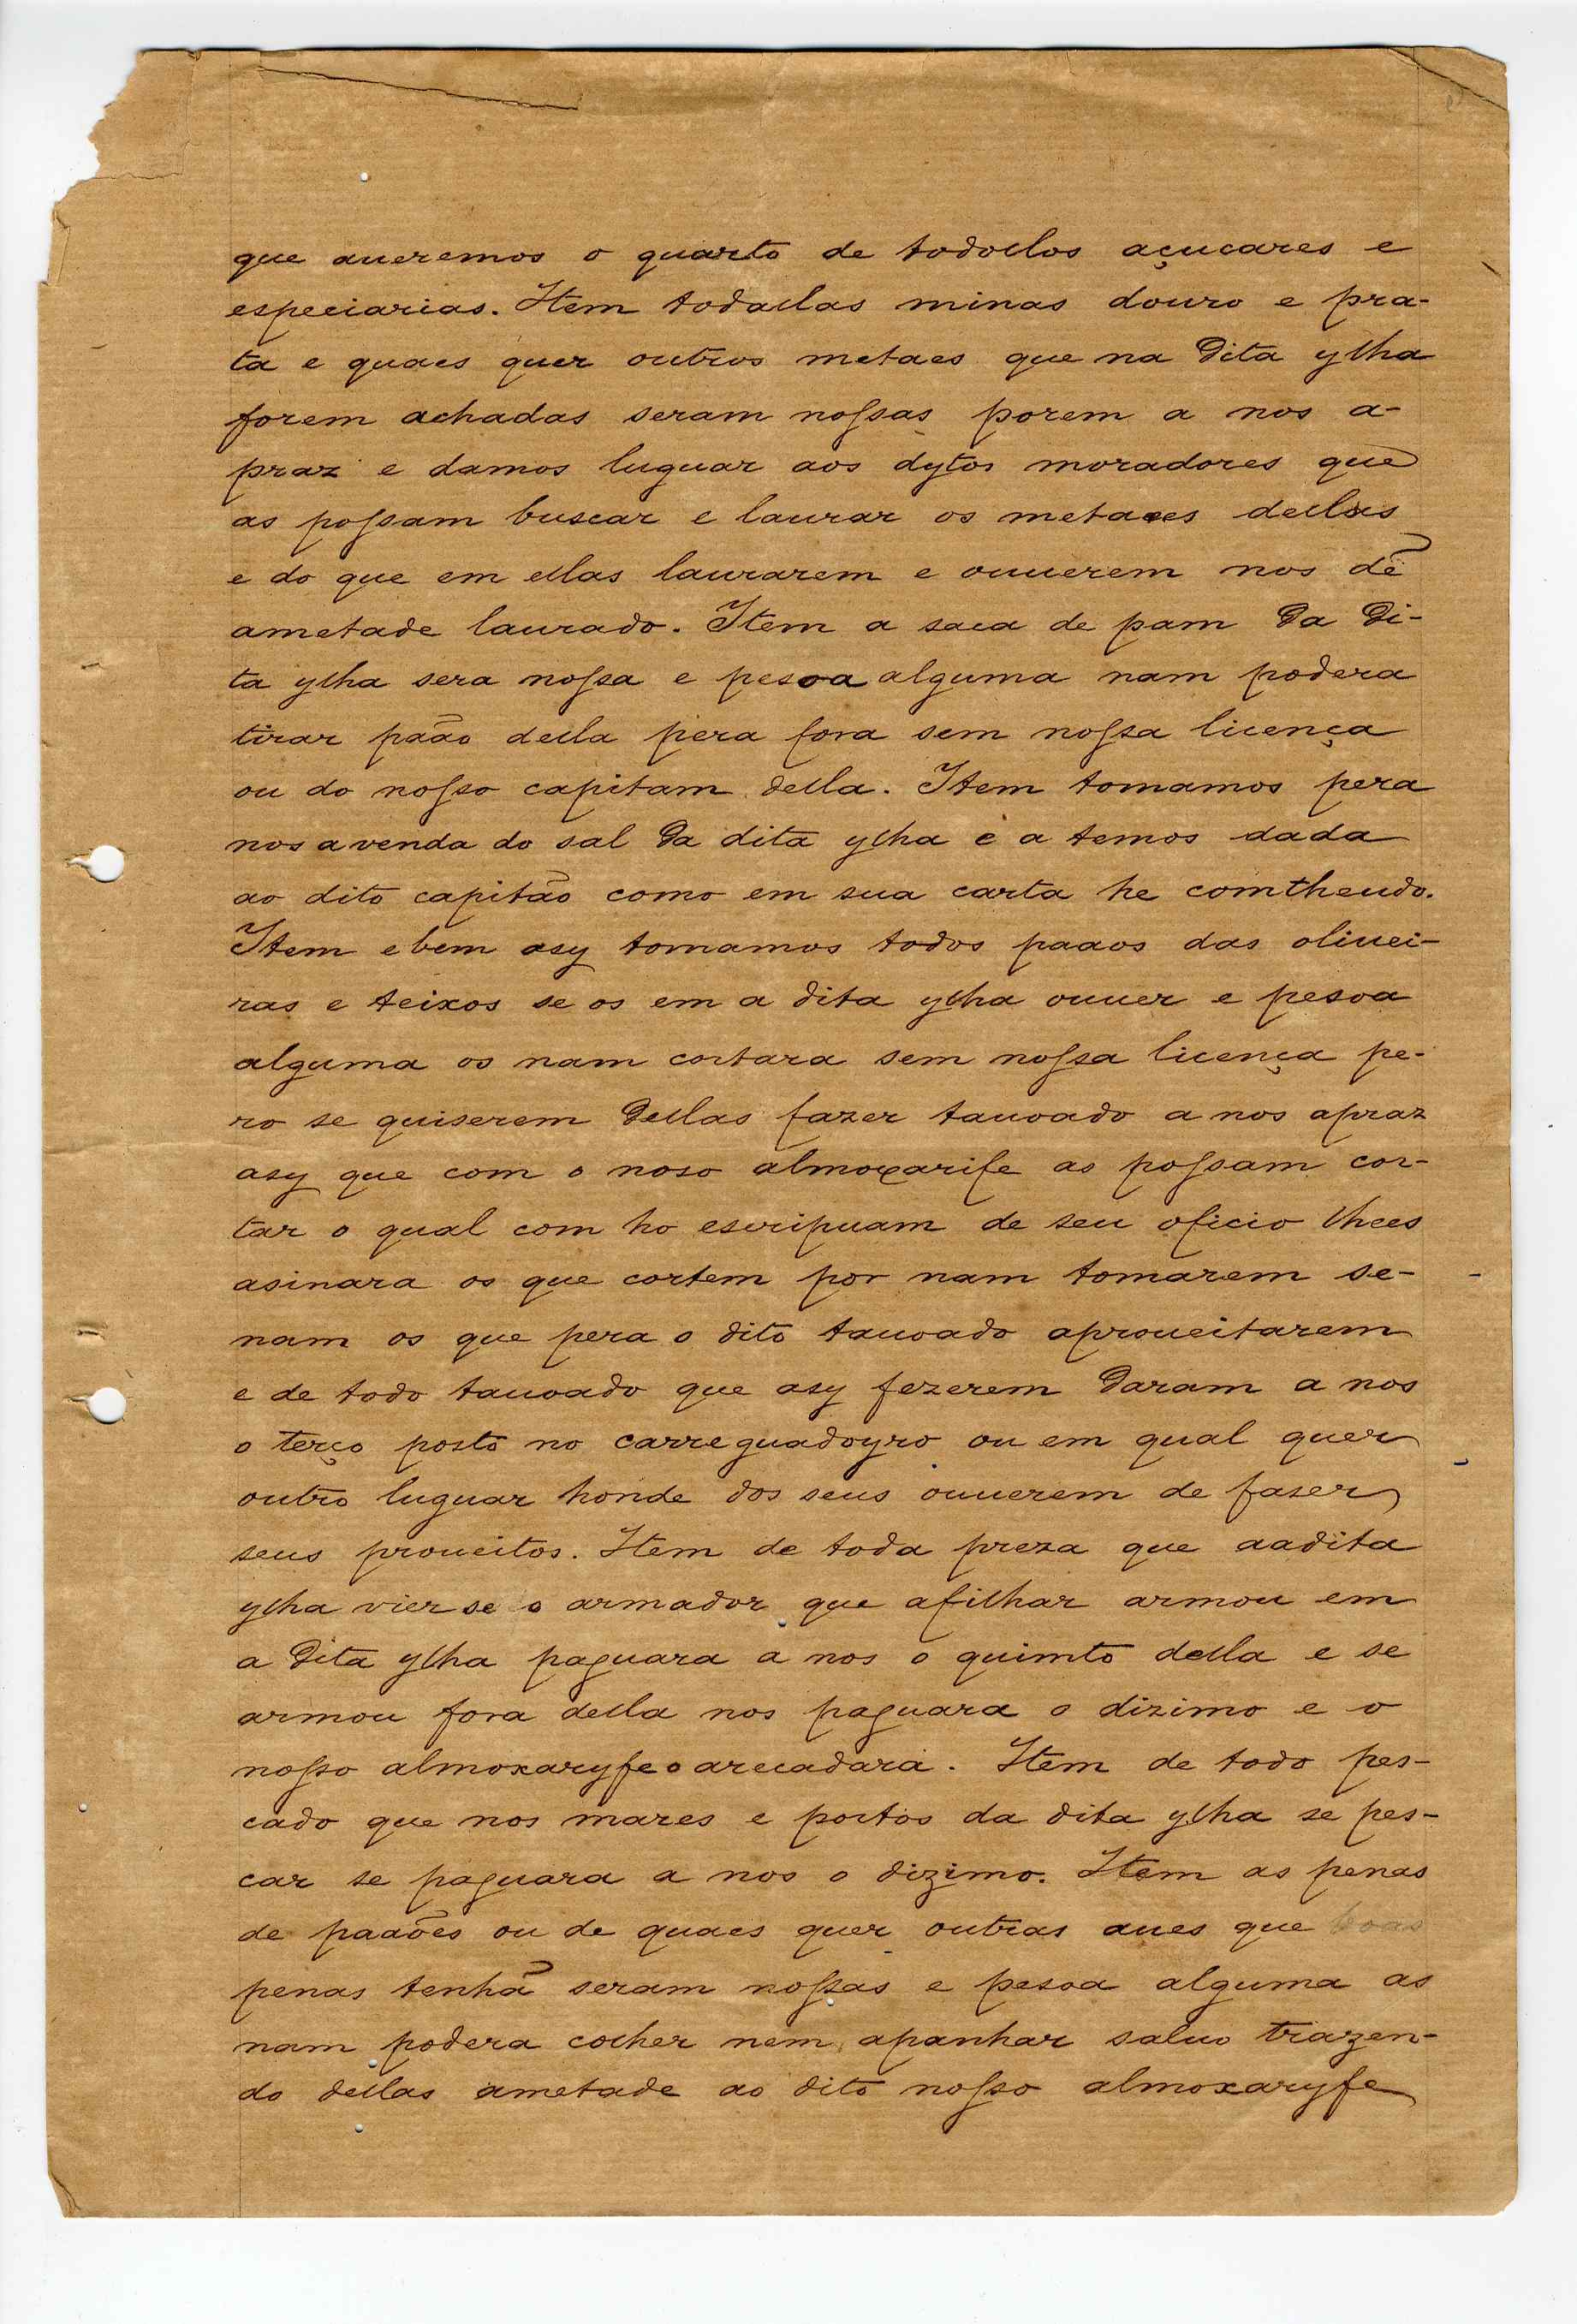 que aueremos o quarto de todollos açucares e
especiarias. Item todallas minas douro e pra-
ta e quaes quer outros metaes que na dita ylha
forem achadas seram nossas porem a nos a-
praz e damos luguar aos dytos moradores que
as possam buscar e laurar os metaes dellas
e do que em ellas laurarem e ouuerem nos dẽ
ametade laurado. Item a saca de pam da di-
ta ylha sera nossa e pesoa alguma nam podera
tirar pãao della pera fora sem nossa licença
ou do nosso capitam della. Item tomamos pera
nos a venda do sal da dita ylha e a temos dada
ao dito capitão como em sua carta he comtheudo.
Item e bem asy tomamos todos paaos das oliuei-
ras e teixos se os em a dita ylha ouuer e pesoa
alguma os nam cortara sem nossa licença pe-
ro se quiserem dellas fazer tauoado a nos apraz
asy que com o noso almoxarife as possam cor-
tar o qual com ho escripuam de seu oficio lhees
asinara os que cortem por nam tomarem se-
nam os que pera o dito tauoado aproueitarem
e de todo tauoado que asy fezerem daram a nos
o terço posto no carreguadoyro ou em qual quer
outro luguar honde dos seus ouuerem de faser
seus proueitos. Item de toda preza que aadita
ylha vier se o armador que afilhar armou em
a dita ylha paguara a nos o quimto della e se
armou fora della nos paguara o dizimo e o
nosso almoxaryfe o arecadara. Item de todo pes-
cado que nos mares e portos da dita ylha se pes-
car se paguara a nos o dizimo. Item as penas
de paaões ou de quaes quer outras aues que boas
penas tenhã seram nossas e pesoa alguma as
nam podera colher nem apanhar saluo trazen-
do dellas ametade ao dito nosso almoxaryfe